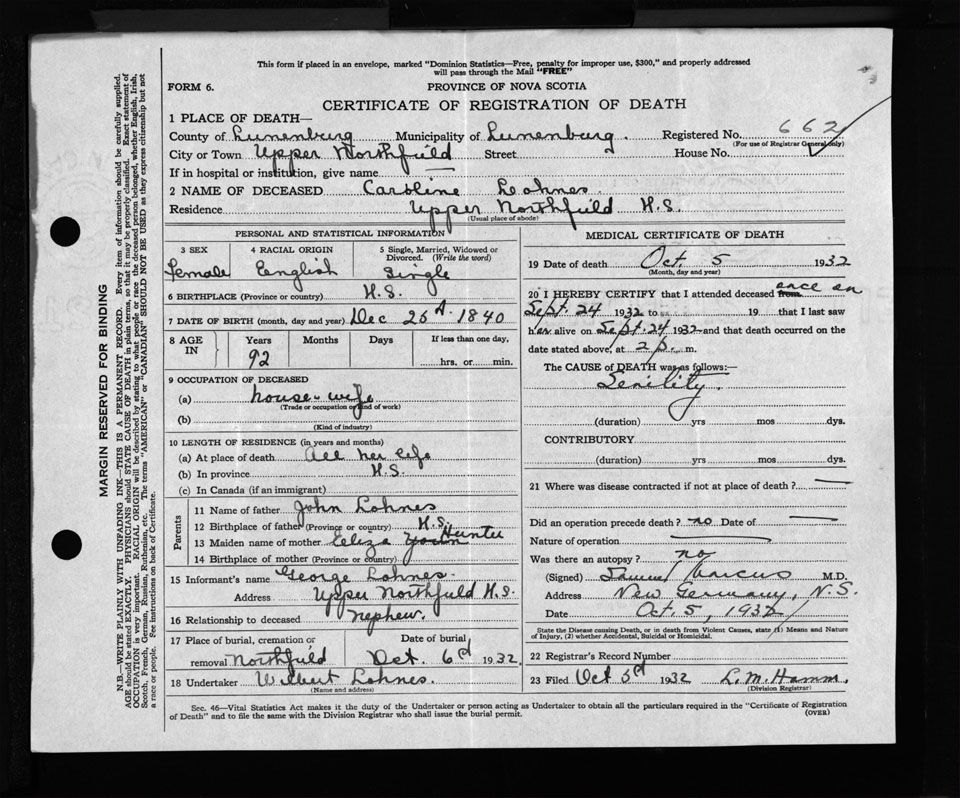 This form if placed in an envelope, marked "Dominion Statistics—Free, penalty for improper use, $300," and properly addressed
will pass through the Mail "FREE"
FORM 6.
PROVINCE OF NOVA SCOTIA
CERTIFICATE OF REGISTRATION OF DEATH
1 PLACE OF DEATH—
County of Lunenburg Municipality of Lunenburg. Registered No. 662
(For use of Registrar General only)
City or Town Upper Northfield Street House No.
If in hospital or institution, give name
2 NAME OF DECEASED Caroline Lohnes.
Residence Upper Northfield N.S.
(Usual place of abode)
PERSONAL AND STATISTICAL INFORMATION
3 SEX 4 RACIAL ORIGIN 5 Single, Married, Widowed or
Divorced. (Write the word)
female English Single
6 BIRTHPLACE (Province or country) N.S.
7 DATE OF BIRTH (month, day and year) Dec 25 1840
8 AGE IN Years Months Days If less than one day,
92 hrs. or min.
9 OCCUPATION OF DECEASED
(a) house-wife
(Trade or occupation or kind of work)
(b)
(Kind of industry)
10 LENGTH OF RESIDENCE (in years and months)
(a) At place of death all her life
(b) In province N.S.
(c) In Canada (if an immigrant)
Parents
11 Name of father John Lohnes
12 Birthplace of father (Province or country) N.S.
13 Maiden name of mother Eliza Huntu
14 Birthplace of mother (Province or country)
15 Informant's name George Lohnes.
Address Upper Northfield N.S.
16 Relationship to deceased nephew.
17 Place of burial, cremation or Date of burial
removal Northfield Oct. 6rd 1932
18 Undertaker Wilbert Lohnes.
(Name and address)
MEDICAL CERTIFICATE OF DEATH
19 Date of death Oct. 5 1932
(Month, day and year)
20 I HEREBY CERTIFY that I attended deceased from once on
Sept. 24 1932 to 19 that I last saw
her alive on Sept. 24 1932 and that death occurred on
date stated above, at 2 p. m.
The CAUSE of DEATH was as follows:—
Senility
(duration) yrs mos dys.
CONTRIBUTORY
(duration) yrs mos dys.
21 Where was disease contracted if not at place of death? —
Did an operation precede death? no Date of —
Nature of operation —
Was there an autopsy? no
(Signed) Samuel Marcus M.D.
Address New Germany, N.S.
Date Oct. 5, 1932
State the Disease causing Death, or in death from Violent Causes, state (1) Means and Nature
of Injury, (2) whether Accidental, Suicidal or Homicidal.
22 Registrar's Record Number
23 Filed Oct 5rd 1932 L. M. Hamm.
(Division Registrar)
Sec. 46—Vital Statistics Act makes it the duty of the Undertaker or person acting as Undertaker to obtain all the particulars required in the "Certificate of Registration
of Death" and to file the same with the Division Registrar who shall issue the burial permit.
(OVER)
MARGIN RESERVED FOR BINDING
N.B.—WRITE PLAINLY WITH UNFADING INK—THIS IS A PERMANENT RECORD. Every item of information should be carefully supplied.
AGE should be stated EXACTLY. PHYSICIANS should STATE CAUSE OF DEATH in plain terms, so that it may be properly classified. Exact statement of
OCCUPATION is very important. RACIAL ORIGIN will be described by stating to what people or race the deceased person belonged, whether English, Irish,
Scotch, French, German, Russian, Ruthenian, etc. The terms "AMERICAN" or "CANADIAN" SHOULD NOT BE USED as they express citizenship but not
a race or people. See instructions on back of Certificate.